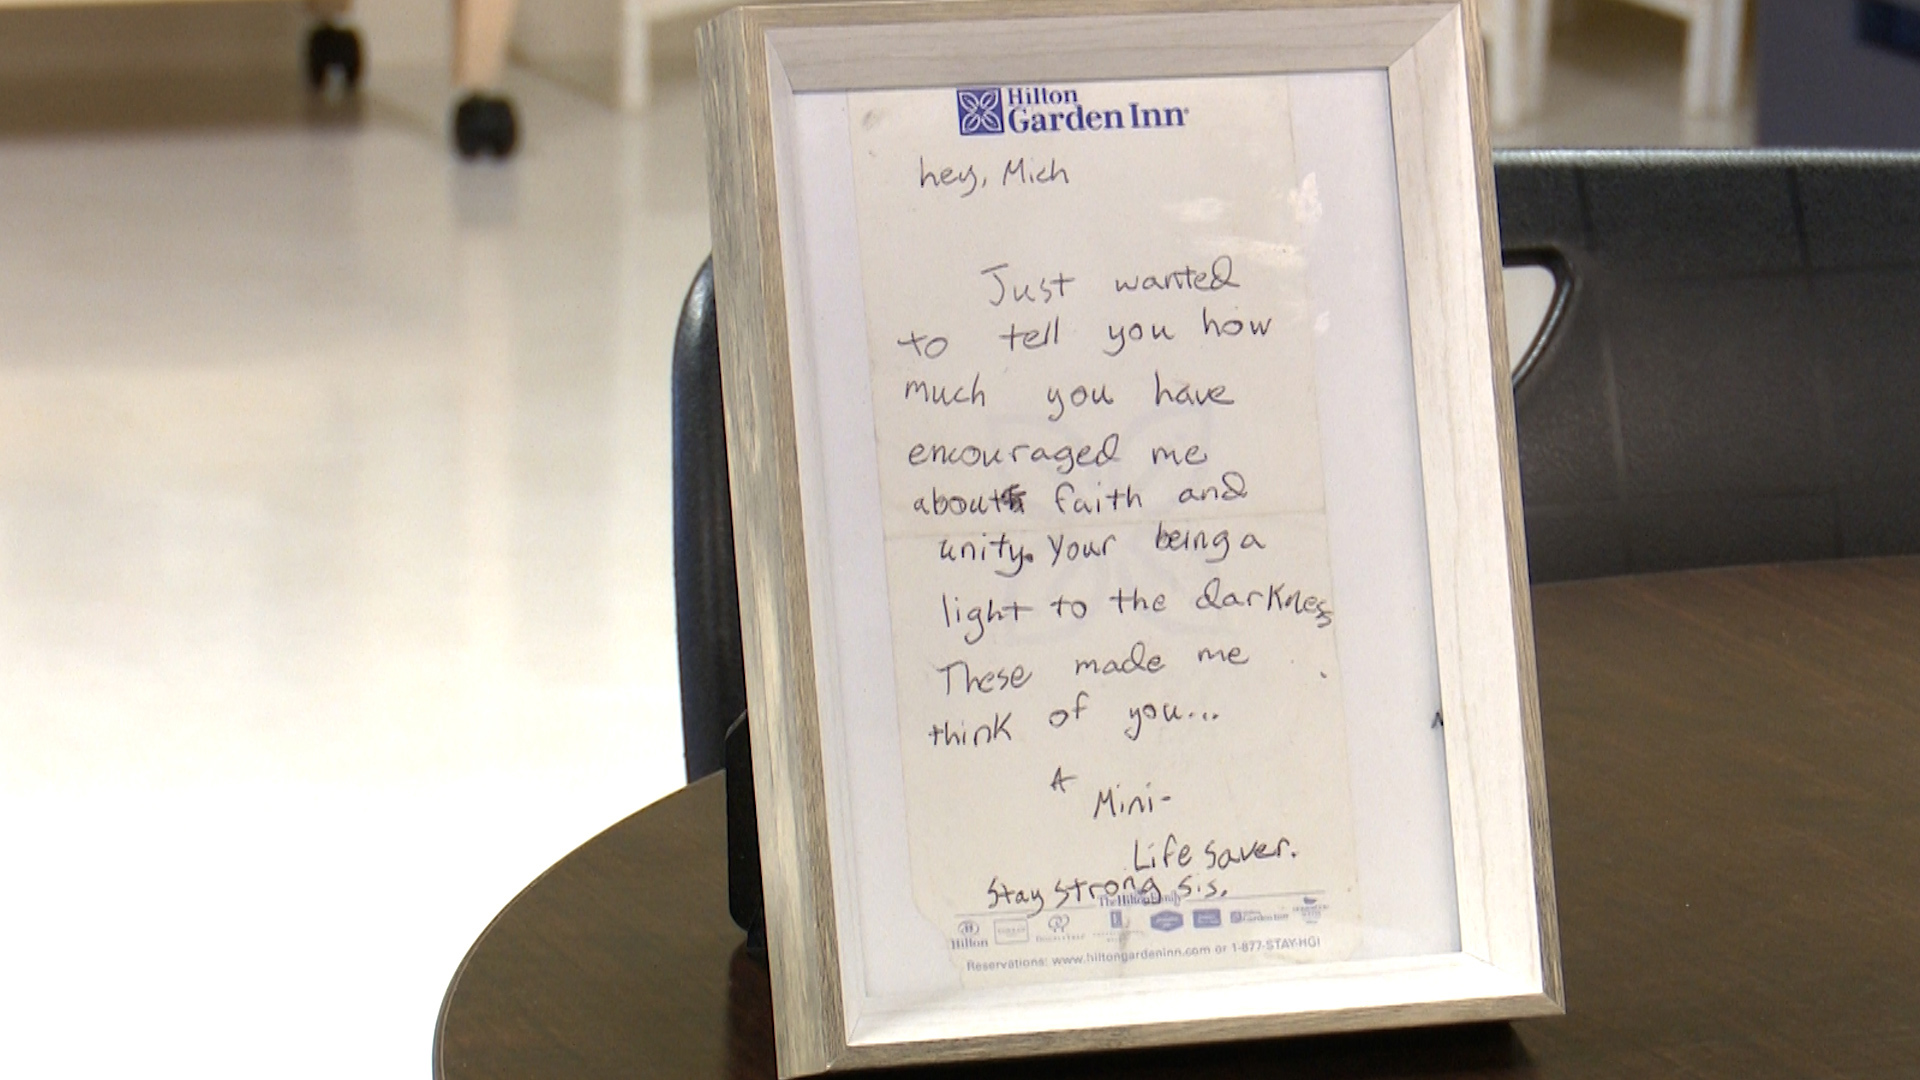 Hilton
Garden Inn
hey, Mich
Just wanted
to tell you how
much you have
encouraged me
about faith and
unity. Your being a
light to the darkness
These made me
think of you...
A
Mini-
Life Saver.
Stay Strong sis.
The Hilton Family
Hilton
Garden Inn
Reservations: www.hiltongardeninn.com or 1-877-STAY-HGI